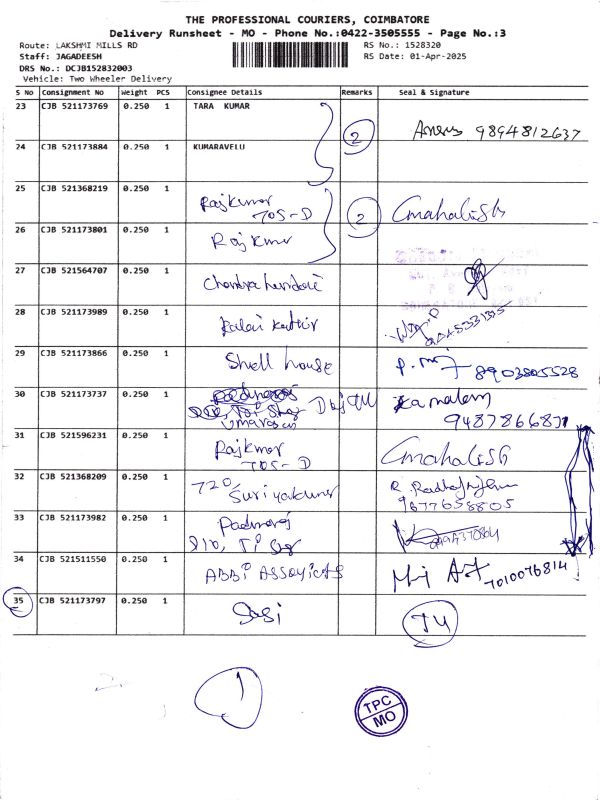 THE PROFESSIONAL COURIERS, COIMBATORE
Delivery Runsheet - MO - Phone No.:0422-3505555 - Page No.:3
Route: LAKSHMI MILLS RD RS No.: 1528320
Staff: JAGADEESH RS Date: 01-Apr-2025
DRS No.: DCJB152832003
Vehicle: Two Wheeler Delivery
S No Consignment No Weight PCS Consignee Details Remarks Seal & Signature
23 CJB 521173769 0.250 1 TARA KUMAR
2 9894812637
24 CJB 521173884 0.250 1 KUMARAVELU
25 CJB 521368219 0.250 1 Rajkumar
705-D 2 Cmahalish
26 CJB 521173801 0.250 1 Rajkmr
27 CJB 521564707 0.250 1
28 CJB 521173989 0.250 1 Kalai kathir
29 CJB 521173866 0.250 1 Shell house 8903805528
30 CJB 521173737 0.250 1 kamalam
9487866871
31 CJB 521596231 0.250 1 Rajkmor
705-D Cmahalish
32 CJB 521368209 0.250 1 720, Suriyakumar
9677658805
33 CJB 521173982 0.250 1 Padmaraj
34 CJB 521511550 0.250 1 ABBI 7010076814
35 CJB 521173797 0.250 1 Sasi TU
1
TPC
MO